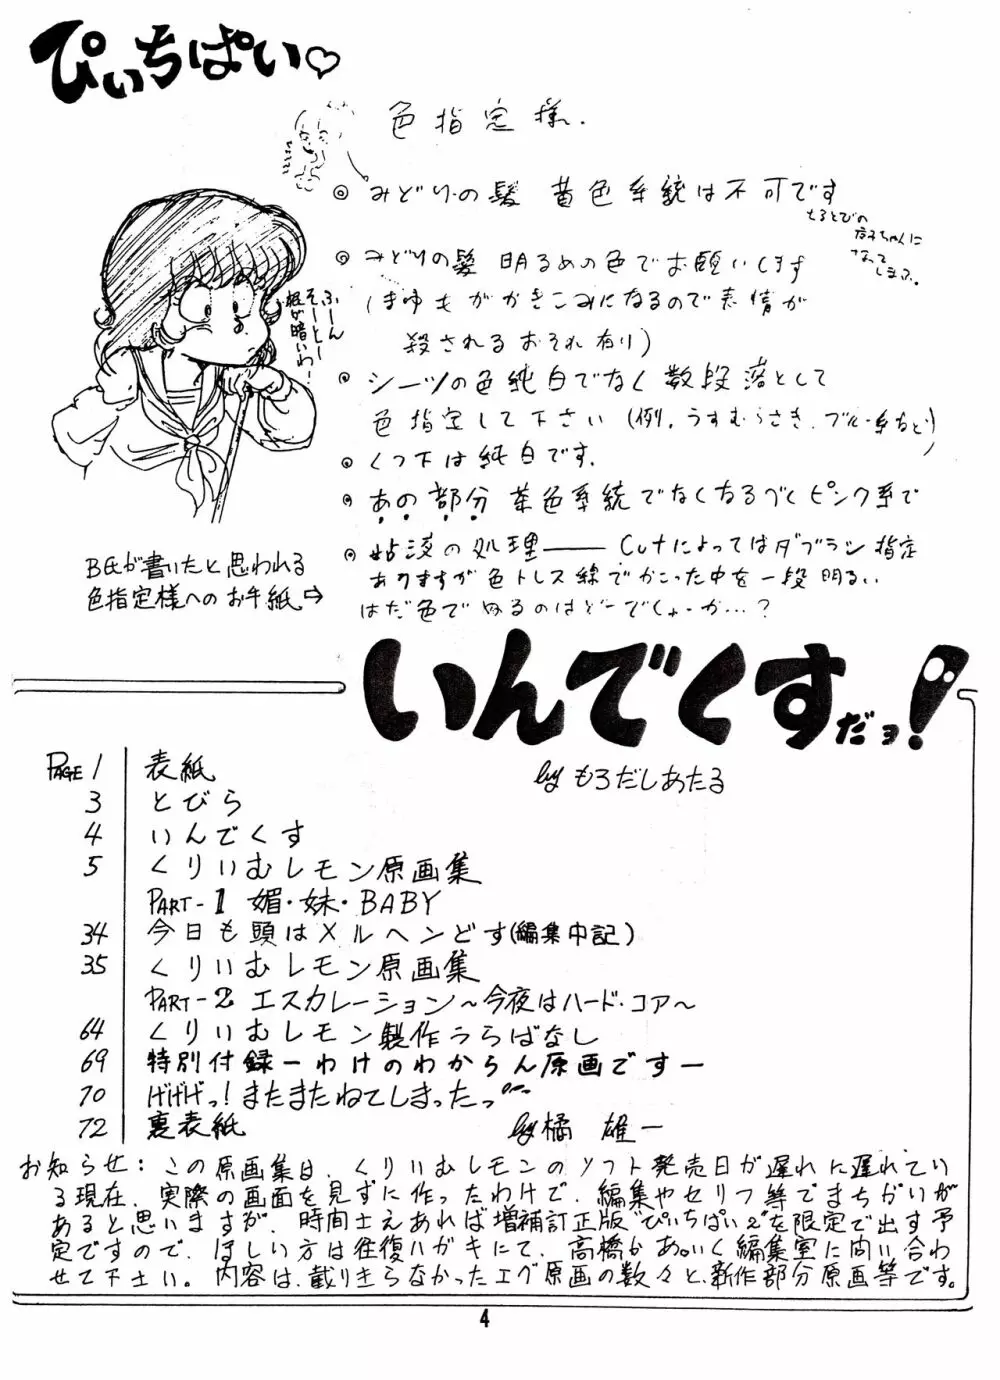 ぴぃちぱい♡
色指定様.
◎ みどりの髪 黄色系統は不可です
なって
しまふ。
◎ みどりの髪 明るめの色でお願いします
(まゆもがかきこみになるので表情が
殺されるおそれ有り)
◎ シーツの色純白でなく数段落として
色指定して下さい(例.うすむらさき.ブルー系など)
◎ くつ下は純白です.
◎ あの部分 茶色系統でなくなるべくピンク系で
◎ 粘液の処理―― Cutによってはダブラシ指定
ありますが色トレス線でかこった中を一段明るい
はだ色でぬるのはどーでしょーか…?
ふーん
そーとー
根が暗いわー
B氏が書いたと思われる
色指定様へのお手紙⇨
いんでくすだョっ!
by もろだしあたる
PAGE 1 表紙
3 とびら
4 いんでくす
5 くりいむレモン原画集
PART-1 媚・妹・BABY
34 今日も頭はメルヘンどす(編集中記)
35 くりいむレモン原画集
PART-2 エスカレーション～今夜はハード・コア～
64 くりいむレモン製作うらばなし
69 特別付録ーわけのわからん原画ですー
70 げげげっ!またまたねてしまったっ
72 裏表紙 by 橘 雄一
お知らせ:この原画集は、くりいむレモンのソフト発売日が遅れに遅れてい
る現在、実際の画面を見ずに作ったわけで、編集やセリフ等でまちがいが
あると思いますが、時間さえあれば増補訂正版"ぴいちぱい2"を限定で出す予
定ですので、ほしい方は往復ハガキにて、高橋かあいく編集室に問い合わ
せて下さい。内容は、載りきらなかったエグ原画の数々と、新作部分原画等です。
4